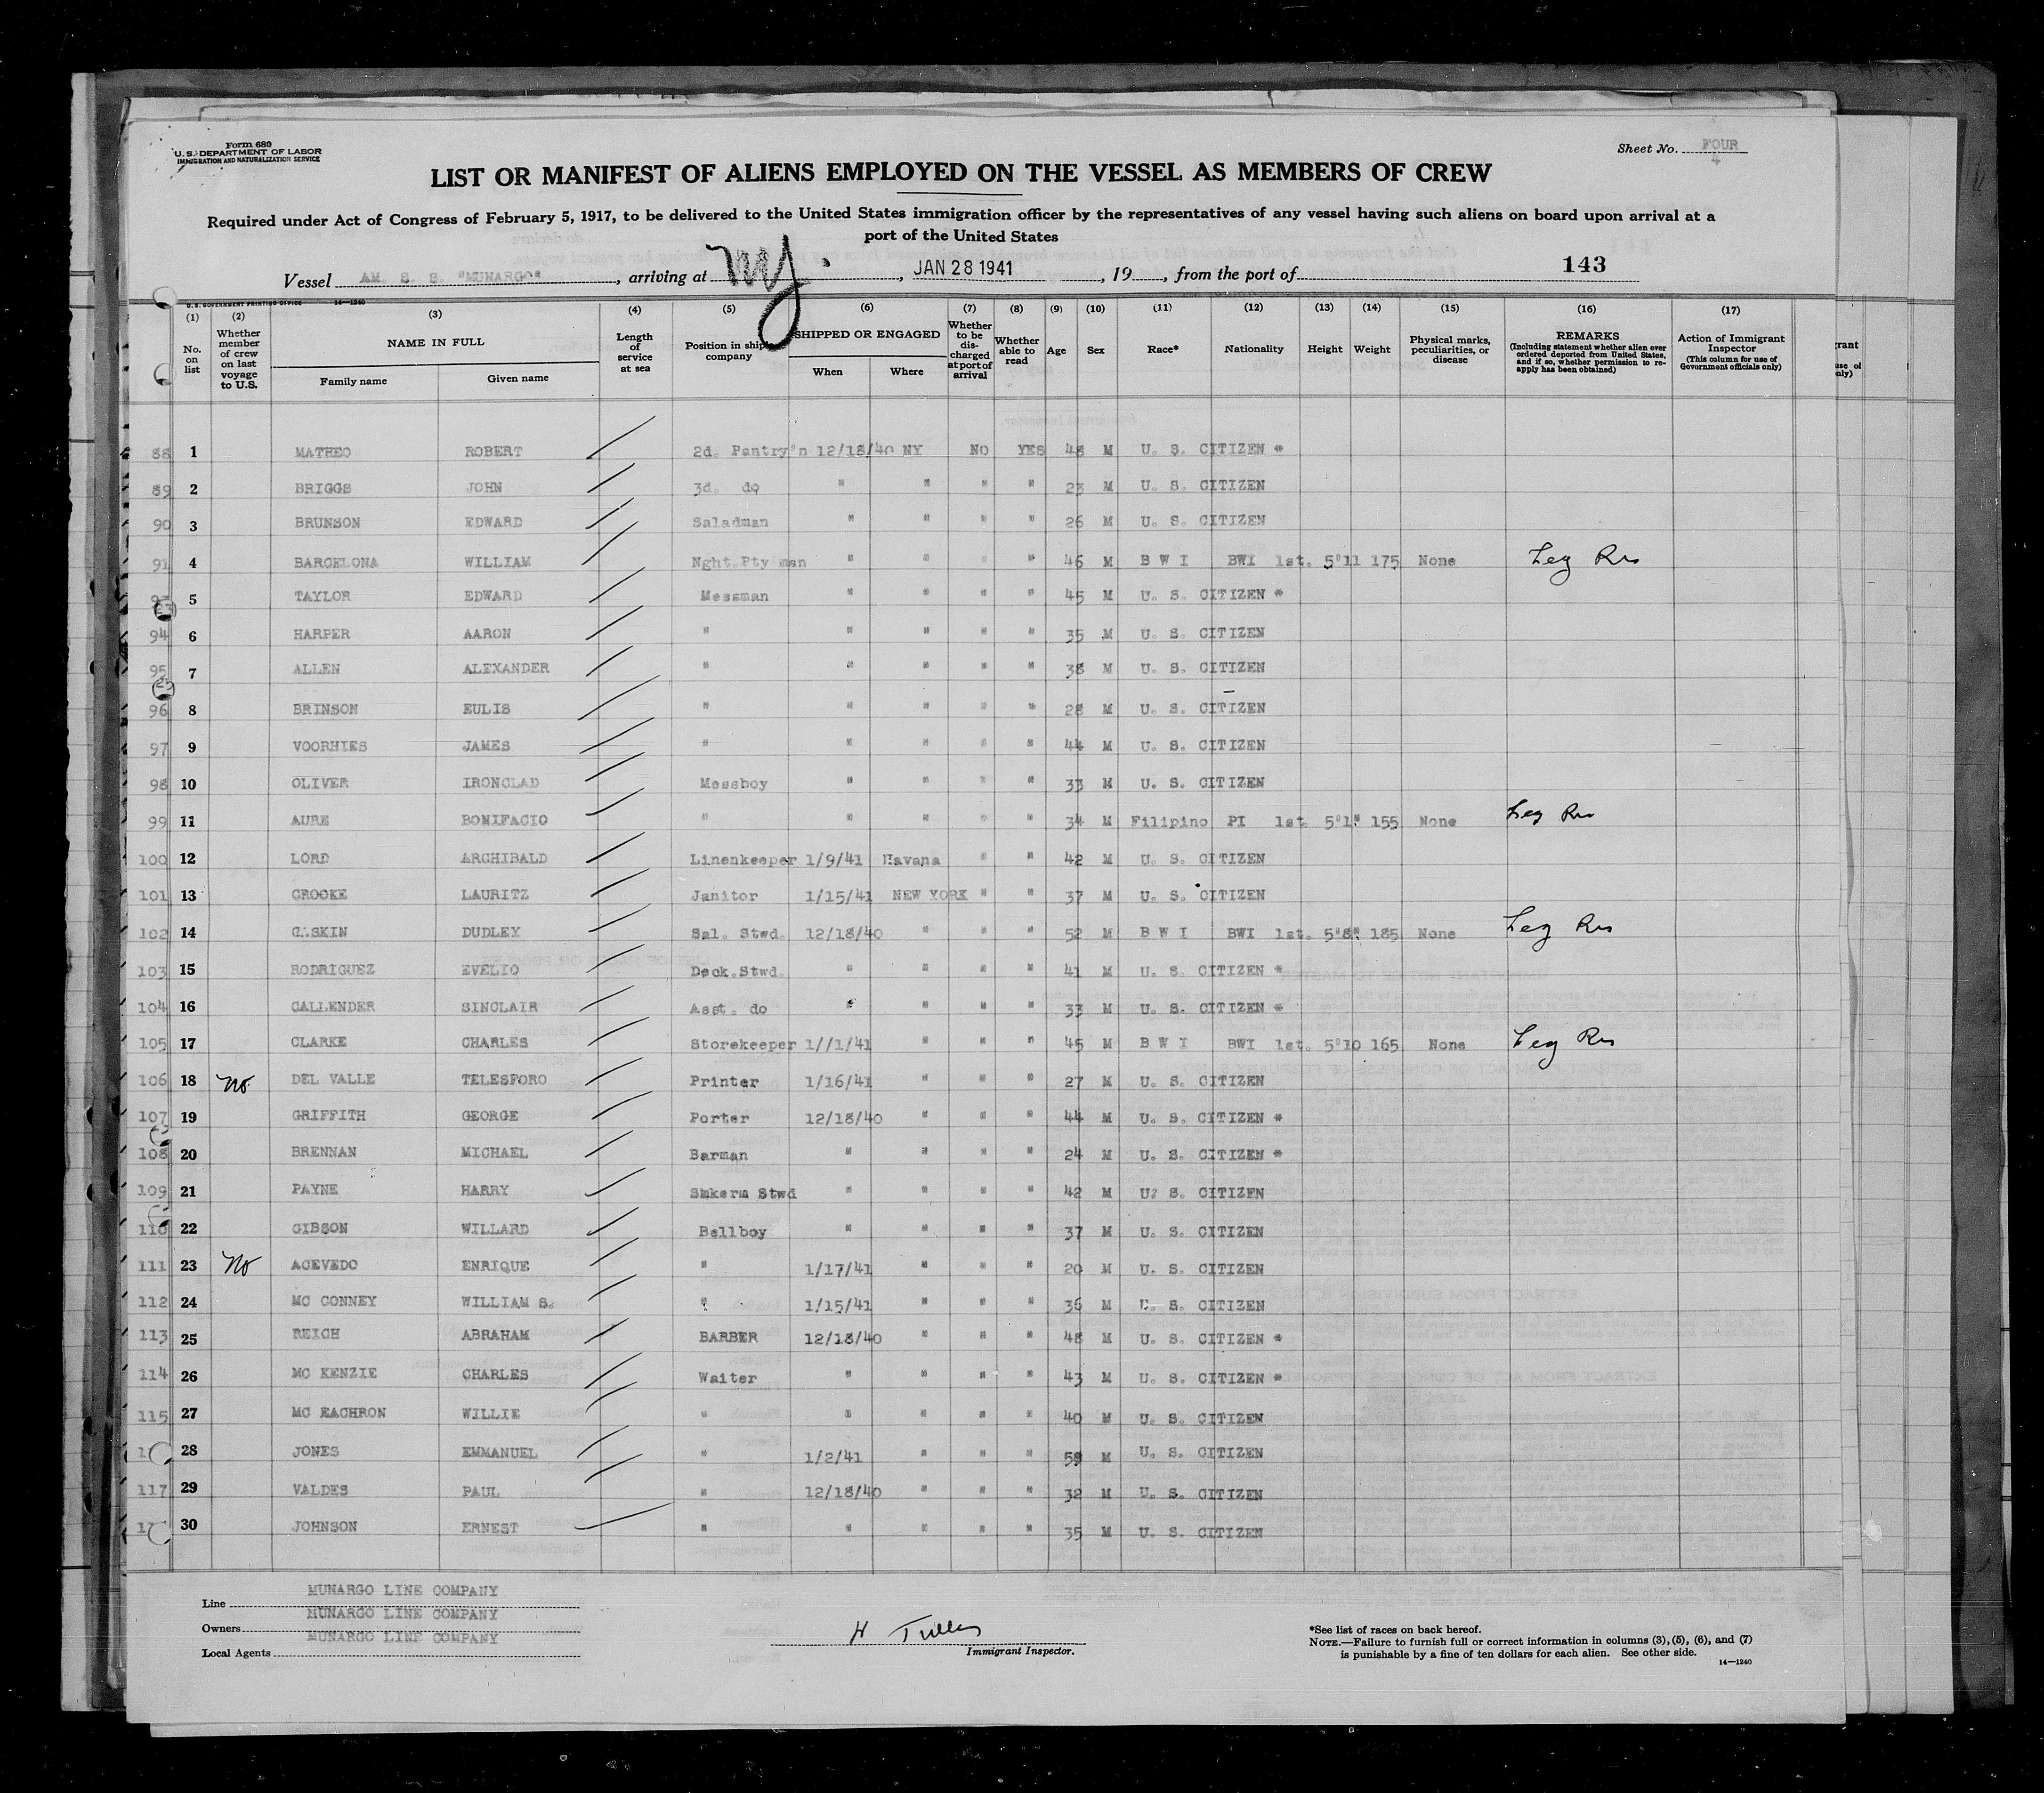 Form 680
U. S. DEPARTMENT OF LABOR
IMMIGRATION AND NATURALIZATION SERVICE
Sheet No. FOUR
4
LIST OR MANIFEST OF ALIENS EMPLOYED ON THE VESSEL AS MEMBERS OF CREW
Required under Act of Congress of February 5, 1917, to be delivered to the United States immigration officer by the representatives of any vessel having such aliens on board upon arrival at a
port of the United States
Vessel AM. S. S. "MUNARGO", arriving at NY., JAN 28 1941, 19, from the port of 143
U. S. GOVERNMENT PRINTING OFFICE 14—1240
(1) (2) (3) (4) (5) (6) (7) (8) (9) (10) (11) (12) (13) (14) (15) (16) (17)
No. on list
Whether member of crew on last voyage to U.S.
NAME IN FULL
Family name Given name
Length of service at sea
Position in ship's company
SHIPPED OR ENGAGED
When Where
Whether to be discharged at port of arrival
Whether able to read
Age
Sex
Race*
Nationality
Height
Weight
Physical marks, peculiarities, or disease
REMARKS
(Including statement whether alien ever ordered deported from United States, and if so, whether permission to reapply has been obtained)
Action of Immigrant Inspector
(This column for use of Government officials only)
88 1 MATHEO ROBERT 2d. Pantry'n 12/18/40 NY NO YES 48 M U. S. CITIZEN *
89 2 BRIGGS JOHN 3d. do " " " " 23 M U. S. CITIZEN
90 3 BRUNSON EDWARD Saladman " " " " 26 M U. S. CITIZEN
91 4 BARCELONA WILLIAM Nght.Pty man " " " " 46 M B W I BWI 1st. 5"11 175 None Leg Res
5 TAYLOR EDWARD Messman " " " " 45 M U. S. CITIZEN *
94 6 HARPER AARON " " " " " 35 M U. S. CITIZEN
95 7 ALLEN ALEXANDER " " " " " 38 M U. S. CITIZEN
96 8 BRINSON EULIS " " " " " 28 M U. S. CITIZEN
97 9 VOORHIES JAMES " " " " " 44 M U. S. CITIZEN
98 10 OLIVER IRONCLAD Messboy " " " " 33 M U. S. CITIZEN
99 11 AURE BONIFACIO " " " " " 34 M Filipino PI 1st. 5"1" 155 None Leg Res
100 12 LORD ARCHIBALD Linenkeeper 1/9/41 Havana " " 42 M U. S. CITIZEN
101 13 CROOKE LAURITZ Janitor 1/15/41 NEW YORK " " 37 M U. S. CITIZEN
102 14 GASKIN DUDLEY Sal. Stwd. 12/18/40 " " " 52 M B W I BWI 1st. 5"8" 185 None Leg Res
103 15 RODRIGUEZ EVELIO Deck.Stwd. " " " " 41 M U. S. CITIZEN *
104 16 CALLENDER SINCLAIR Asst. do " " " " 33 M U. S. CITIZEN *
105 17 CLARKE CHARLES Storekeeper 1//1/41 " " " 45 M B W I BWI 1st. 5"10 165 None Leg Res
106 18 No DEL VALLE TELESFORO Printer 1/16/41 " " " 27 M U. S. CITIZEN
107 19 GRIFFITH GEORGE Porter 12/18/40 " " " 44 M U. S. CITIZEN *
108 20 BRENNAN MICHAEL Barman " " " " 24 M U. S. CITIZEN *
109 21 PAYNE HARRY Smkerm Stwd " " " " 42 M U. S. CITIZEN
110 22 GIBSON WILLARD Bellboy " " " " 37 M U. S. CITIZEN
111 23 No ACEVEDO ENRIQUE " 1/17/41 " " " 20 M U. S. CITIZEN
112 24 MC CONNEY WILLIAM S. " 1/15/41 " " " 36 M U. S. CITIZEN
113 25 REICH ABRAHAM BARBER 12/18/40 " " " 48 M U. S. CITIZEN *
114 26 MC KENZIE CHARLES Waiter " " " " 43 M U. S. CITIZEN *
115 27 MC EACHRON WILLIE " " " " " 40 M U. S. CITIZEN
28 JONES EMMANUEL " 1/2/41 " " " 59 M U. S. CITIZEN
117 29 VALDES PAUL " 12/18/40 " " " 32 M U. S. CITIZEN
30 JOHNSON ERNEST " " " " " 35 M U. S. CITIZEN
Line MUNARGO LINE COMPANY
Owners MUNARGO LINE COMPANY
Local Agents MUNARGO LINE COMPANY
Immigrant Inspector.
*See list of races on back hereof.
NOTE.—Failure to furnish full or correct information in columns (3), (5), (6), and (7)
is punishable by a fine of ten dollars for each alien. See other side.
14—1240